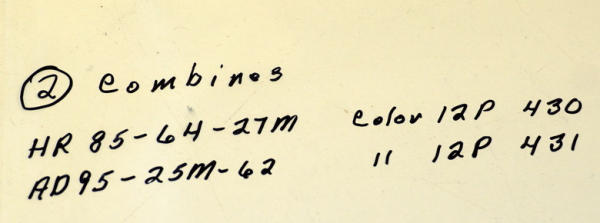 ② Combines
HR 85-64-27M Color 12P 430
AD95-25M-62 " 12P 431